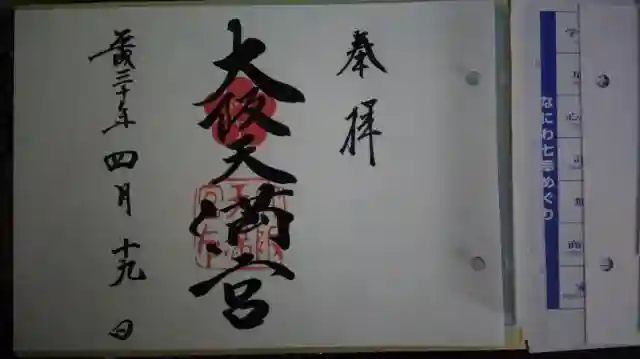 奉拝
大阪天満宮
平成三十年四月十九日
なにわ七幸めぐり